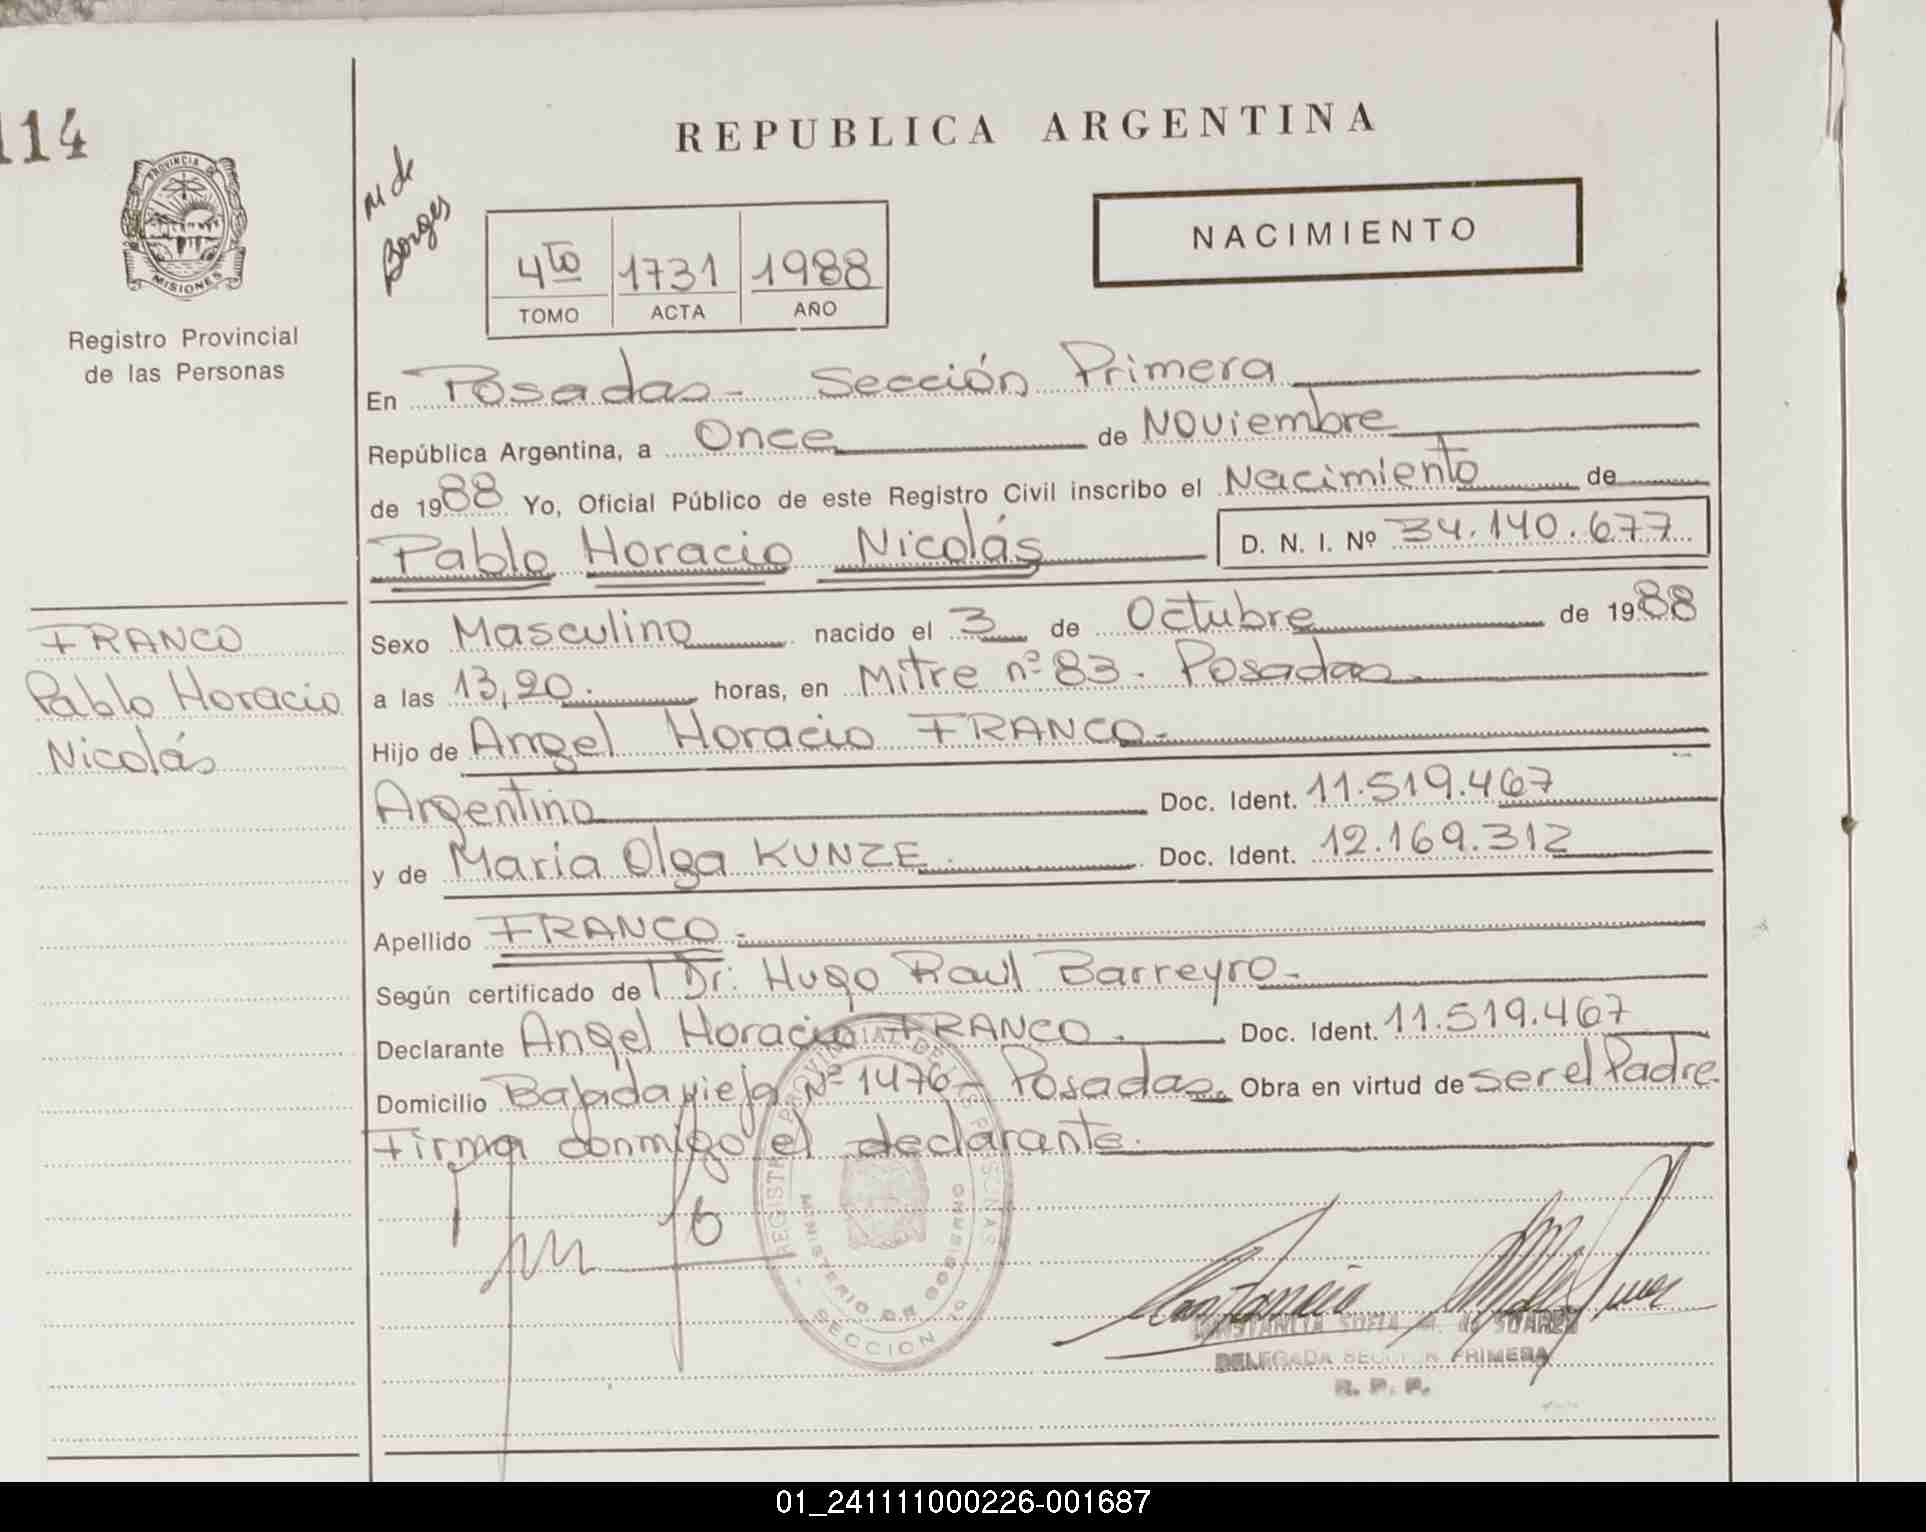 114
PROVINCIA DE
MISIONES
Registro Provincial
de las Personas
FRANCO
Pablo Horacio
Nicolás
M de
Borges
REPUBLICA ARGENTINA
NACIMIENTO
4to 1731 1988
TOMO ACTA AÑO
En Posadas - Sección Primera
República Argentina, a Once de Noviembre
de 1988 Yo, Oficial Público de este Registro Civil inscribo el Nacimiento de
Pablo Horacio Nicolás D. N. I. Nº 34.140.677
Sexo Masculino nacido el 3 de Octubre de 1988
a las 13,20. horas, en Mitre nº 83. Posadas
Hijo de Angel Horacio FRANCO-
Argentino Doc. Ident. 11.519.467
y de Maria Olga KUNZE. Doc. Ident. 12.169.312
Apellido FRANCO.
Según certificado de Dr: Hugo Raul Barreyro-
Declarante Angel Horacio FRANCO. Doc. Ident. 11.519.467
Domicilio Bajada vieja Nº 1476 - Posadas. Obra en virtud de ser el Padre.
Firma conmigo el declarante.
REGISTRO PROVINCIAL DE LAS PERSONAS
MINISTERIO DE GOBIERNO
SECCION 1a
CONSTANCIA SOFIA M. de SUAREZ
DELEGADA SECCION PRIMERA
R. P. P.
01_241111000226-001687